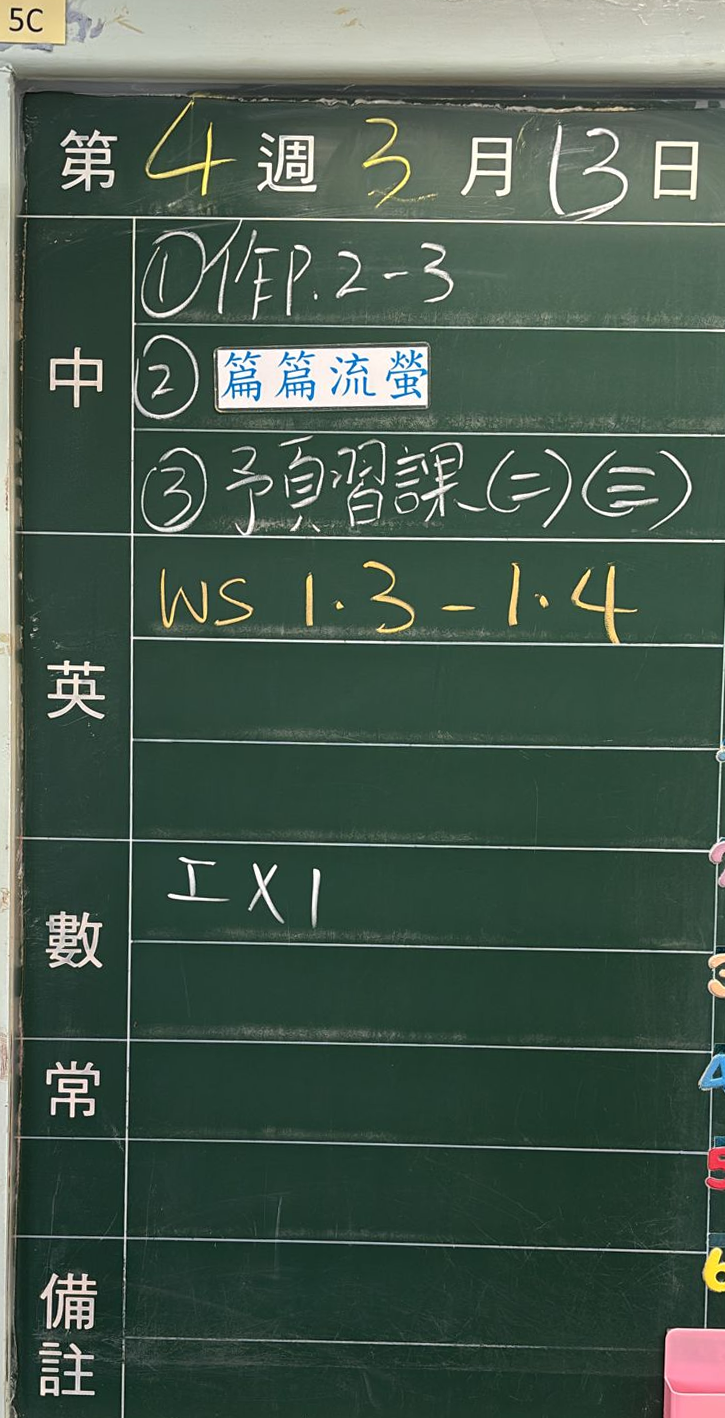 5C
第4週3月13日
中
①作P.2-3
②篇篇流螢
③預習課(二)(三)
英
WS 1.3-1.4
數
工X1
常
備註
3
4
5
6